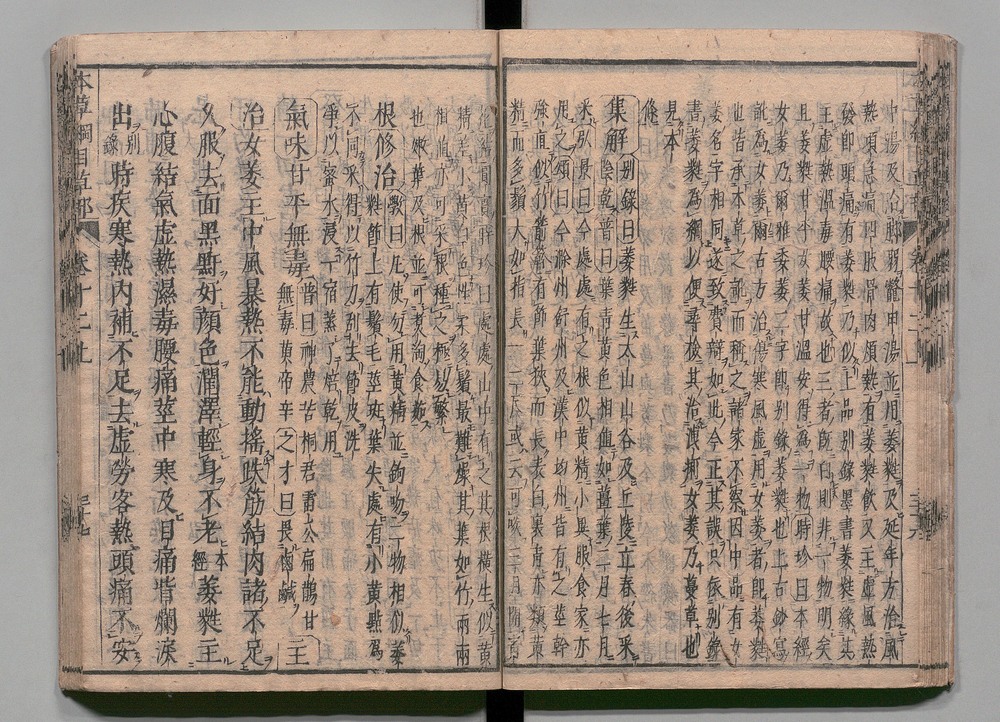 熱頭急 四肢骨肉煩熱有萎蕤飲又主虛風熱
發即頭痛有萎蕤 似上品別錄墨書萎蕤
主虛熱溫毒腰痛故也三者既白則非二物明矣
且萎蕤甘平女萎甘溫安得為一物時珍曰本經
女萎乃爾雅委萎二字即別錄萎蕤也上古鈔寫
訛為女萎爾古方治傷寒風虛用女萎者即萎蕤
也皆承本草之訛而稱之諸家不察因中品有女
萎名字相同遂致費辯如此今正其誤只依別錄
書萎蕤為綱以便尋檢其治泄痢女萎乃蔓草也
見本
條
集解 別錄曰萎蕤生太山山谷及丘陵立春後采
陰乾普曰葉青黃色相值如薑葉二月七月
采弘景曰今處處有之根似黃精小異服食家亦
用之頌曰今滁州舒州及漢中均州皆有之莖幹
強直似竹箭簳有節葉狹而長表白裏青亦類黃
精而多鬚大如指長一二尺或云可啖三月開青
時珍曰處處山中有之其根橫生似黃
精差小黃白色性柔多鬚最難燥其葉如竹兩兩
相值亦可采根種之極易繁
也嫩葉及根並可煮淘食茹
根修治 斅曰凡使勿用黃精並鉤吻二物相似萎
蕤節上有鬚毛莖斑葉尖處有小黃點為
不同采得以竹刀刮去節皮洗
淨以蜜水浸一宿蒸了焙乾用
氣味甘平無毒 普曰神農苦桐君雷公扁鵲甘
無毒黃帝辛 之才曰畏鹵鹹 主
治女萎主中風暴熱不能動搖跌筋結肉諸不足
久服去面黑䵟好顏色潤澤輕身不老 本經 萎蕤主
心腹結氣虛熱濕毒腰痛莖中寒及目痛眥爛淚
出 別錄 時疾寒熱內補不足去虛勞客熱頭痛不安
本草綱目草部 卷十二上